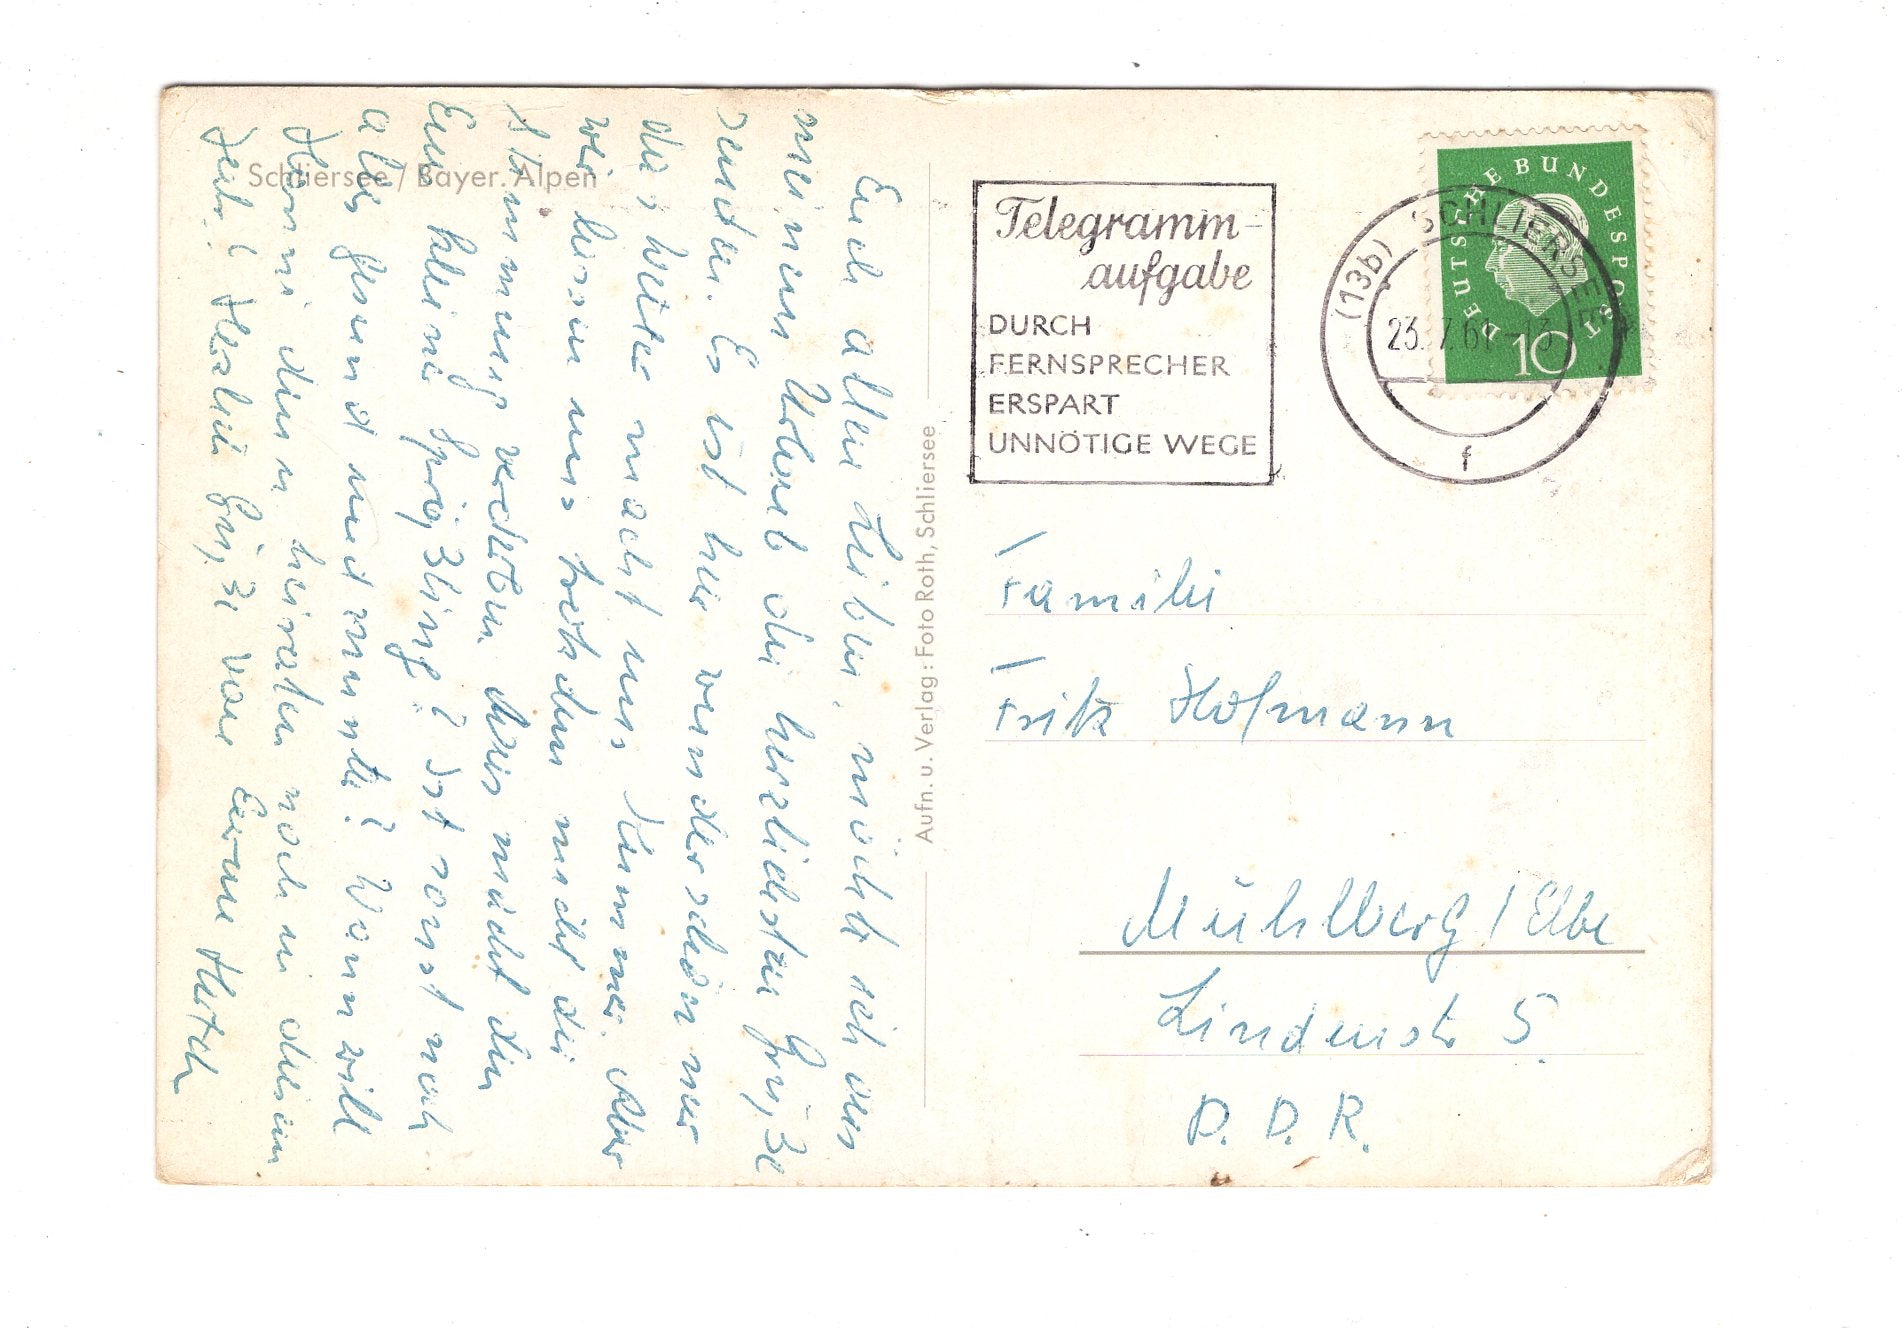 Schliersee / Bayer. Alpen
Euch allen Lieben, möchte ich aus
meinem Urlaub die herzlichsten Grüße
senden. Es ist hier wunderschön nur
das Wetter macht uns Kummer. Aber
wir lassen uns trotzdem nicht die
Stimmung verderben. Was macht denn
Euer kleiner Sprößling? Ist sonst noch
alles gesund und munter? Wann will
Hanni denn heiraten noch in diesem
Jahr? Herzliche Grüße von Eurer
Aufn. u. Verlag: Foto Roth, Schliersee
Telegramm-
aufgabe
DURCH
FERNSPRECHER
ERSPART
UNNÖTIGE WEGE
(13b) SCHLIERSEE
23. 7. 61 -13
f
DEUTSCHE BUNDESPOST
10
Familie
Fritz Hofmann
Mühlberg / Elbe
Lindenstr 5.
D. D. R.